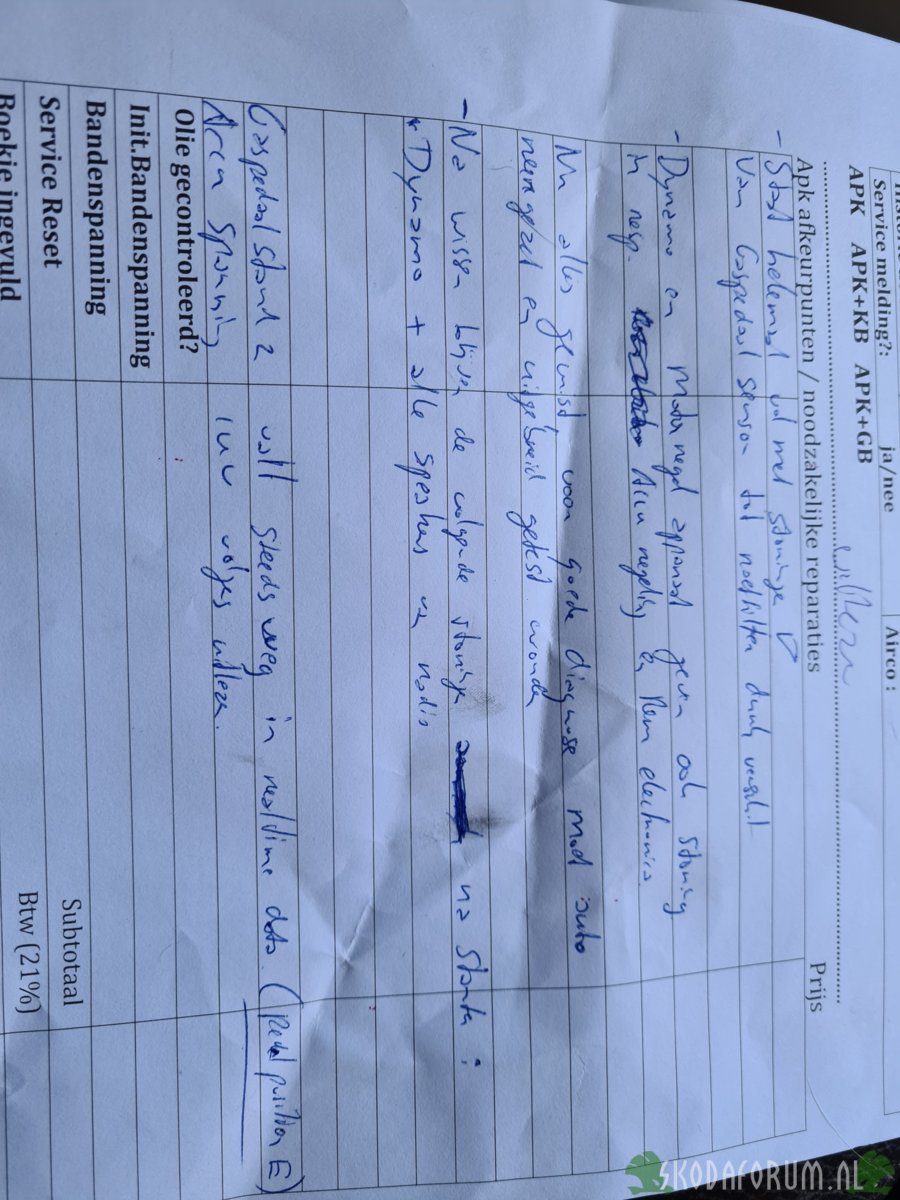 Service melding?: ja/nee Airco :
APK APK+KB APK+GB
Apk afkeurpunten / noodzakelijke reparaties Prijs
- Staat helemaal vol met storingen
van Gaspedaal sensor tot roetfilter druk verschil
- Dynamo en Motor regel apparaat geven ook storing
in resp. Accu regeling en Rem electronica.
Na alles gewist voor goede diagnose moet auto
neergezet en uitgebreid getest worden
- Na wissen blijven de volgende storingen na starten :
* Dynamo + alle speakers van radio
Gaspedaal stand 2 valt steeds weg in realtime data. (Pedal position E)
Accu spanning volgens uitlezen.
Olie gecontroleerd?
Init.Bandenspanning
Bandenspanning
Service Reset Subtotaal
Boekje ingevuld Btw (21%)
SKODAFORUM.NL